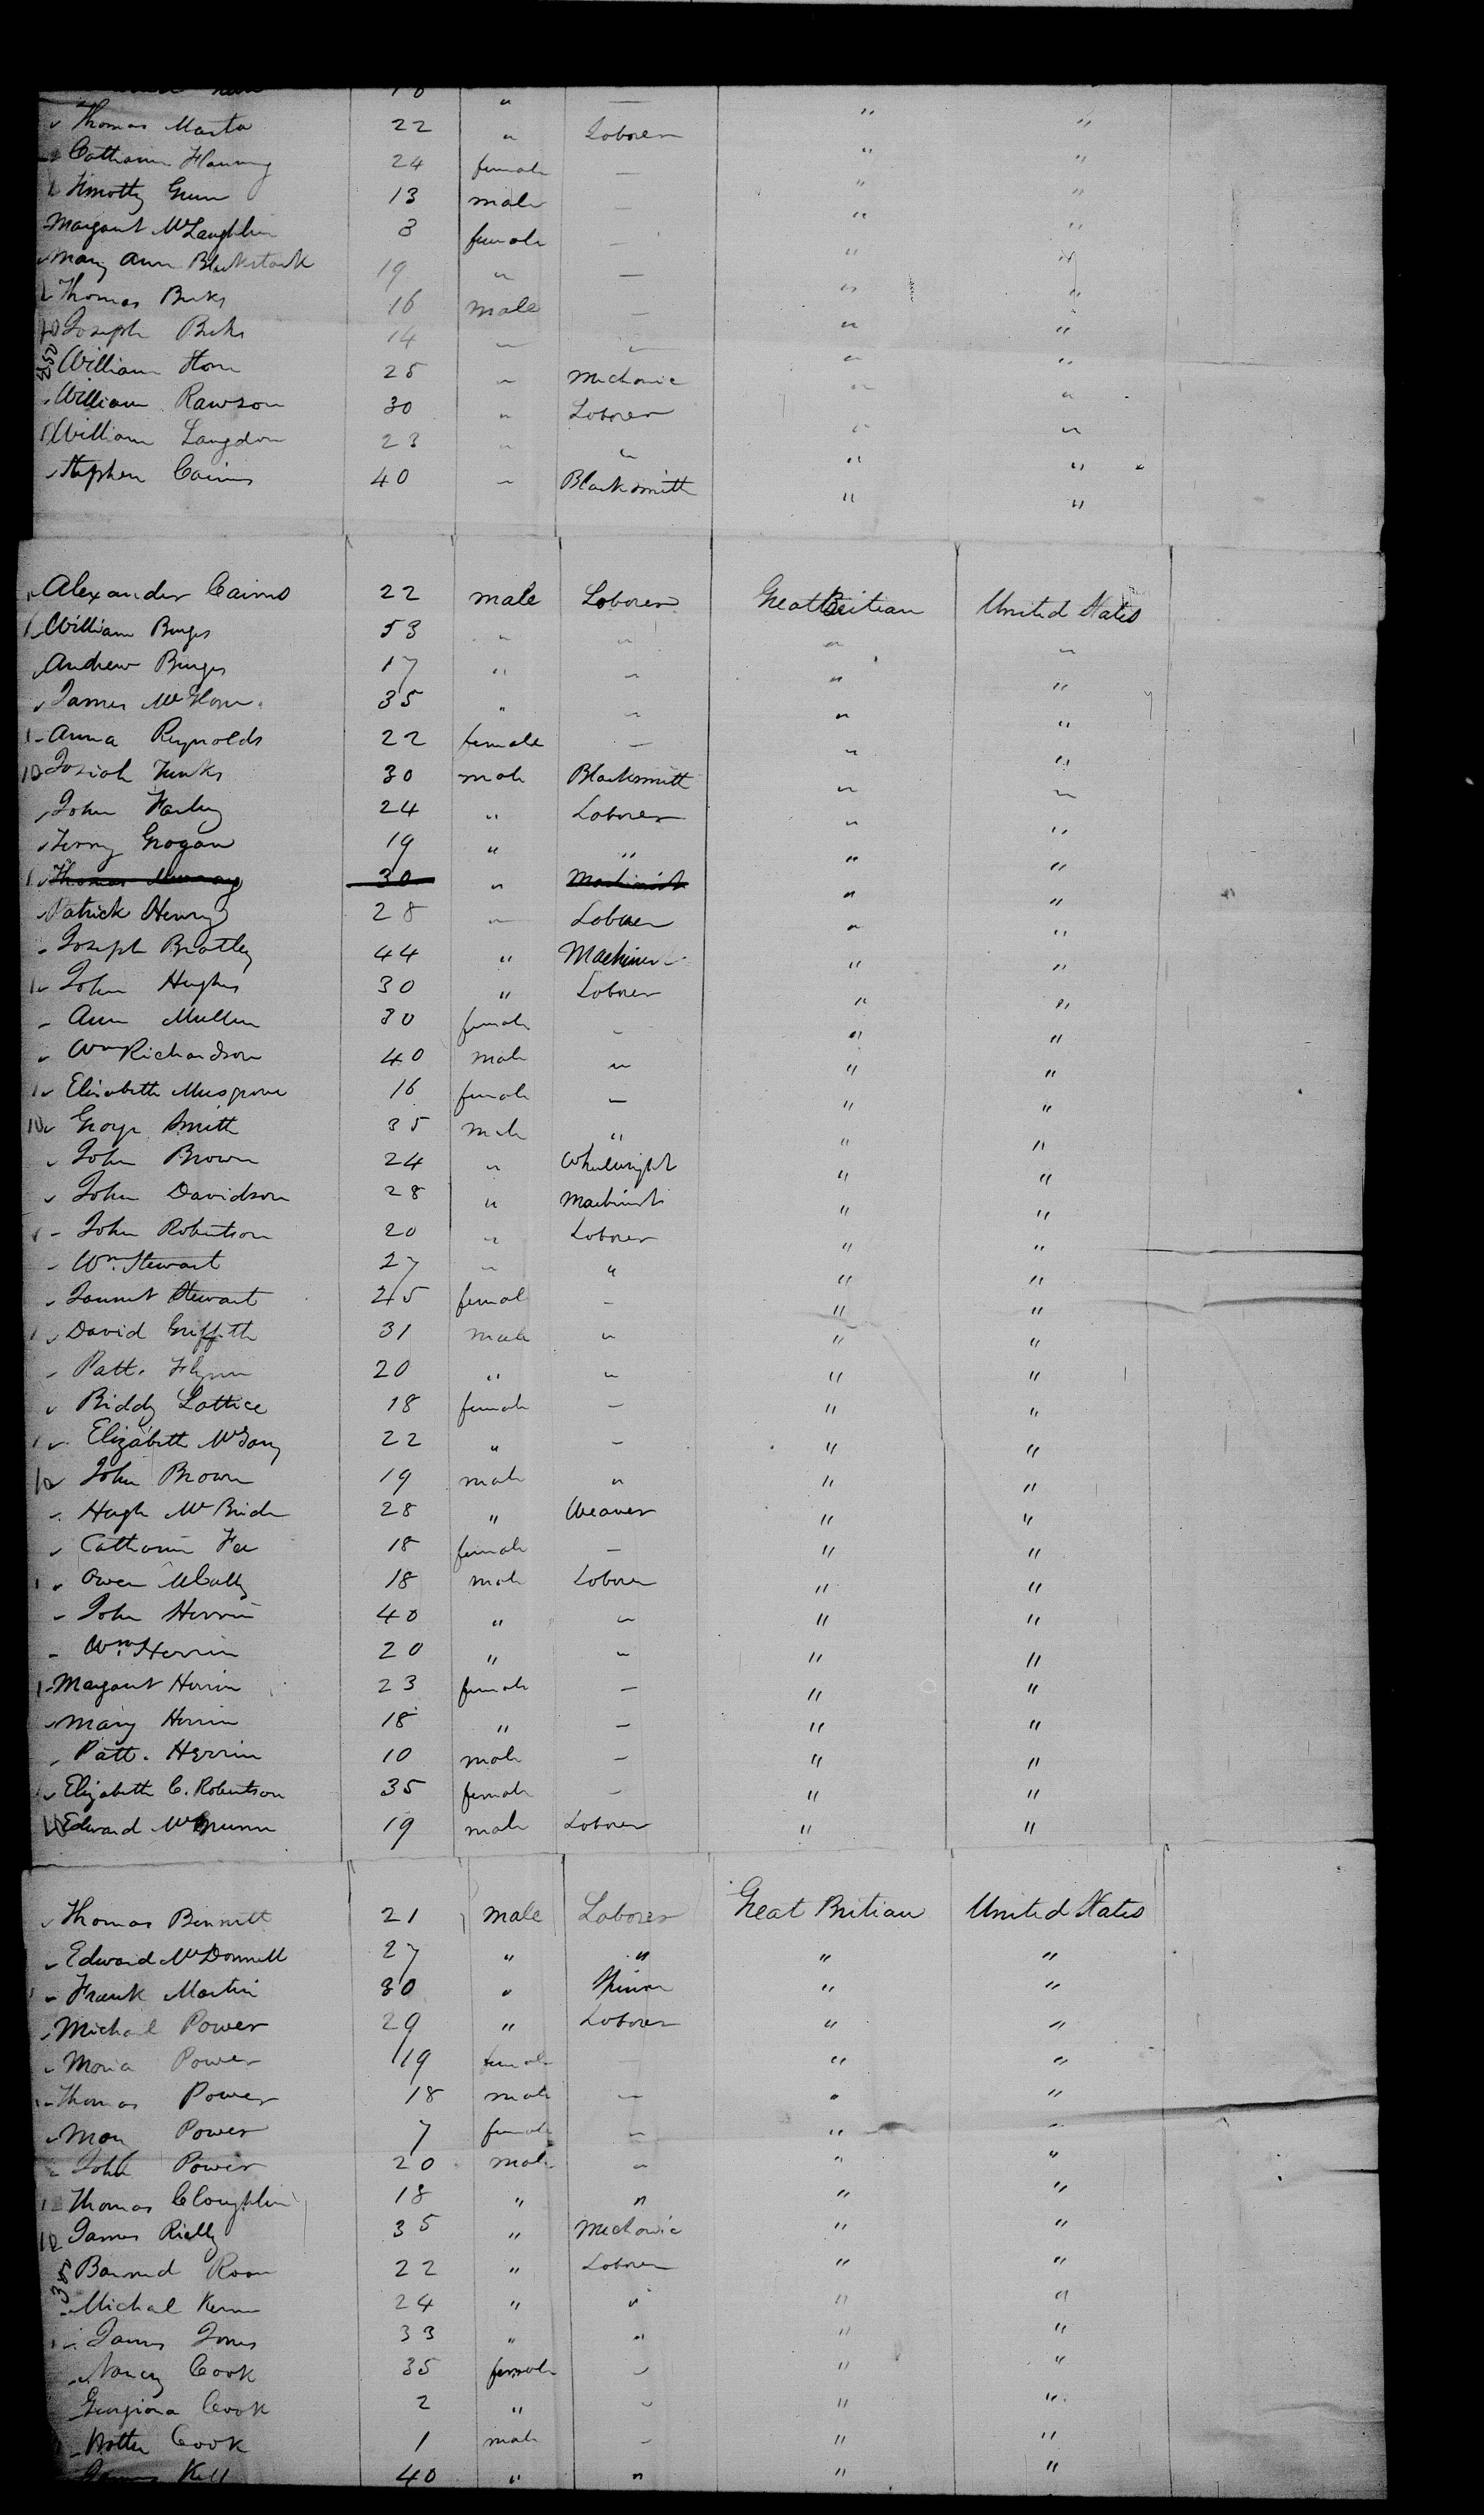 Thomas Marta 22 " Laborer " "
Catharine Flannig 24 female — " "
Timothy Green 13 male — " "
Margaret McLaughlin 8 female — " "
Mary Ann Blackstock 19 " — " "
Thomas Berks 16 male — " "
Joseph Berks 14 " " " "
William Horn 25 " Mechanic " "
William Rawson 30 " Laborer " "
William Langdon 23 " " " "
Stephen Cairns 40 " Blacksmith " "
Alexander Cairns 22 male Laborer Great Britian United States
William Burges 53 " " " "
Andrew Burges 17 " " " "
James McHorn 35 " " " "
Anna Reynolds 22 female — " "
Josiah Junks 30 male Blacksmith " "
John Farley 24 " Laborer " "
Terry Grogan 19 " " " "
Thomas Murray 30 " Machinist " "
Patrick Henry 28 " Laborer " "
Joseph Bratley 44 " Machiner " "
John Hughes 30 " Laborer " "
Ann Mullen 30 female — " "
Wm Richardson 40 male " " "
Elisabeth Musgrove 16 female — " "
George Smith 35 male " " "
John Brown 24 " Wheelwright " "
John Davidson 28 " Machinist " "
John Robertson 20 " Laborer " "
Wm. Stewart 27 " " " "
Jannet Stewart 25 femal — " "
David Griffith 31 male " " "
Patt. Flynn 20 " " " "
Biddy Lattice 18 female — " "
Elizabeth McGary 22 " — " "
John Brown 19 male " " "
Hugh McBride 28 " Weaver " "
Catharin Fee 18 female — " "
Owen McCally 18 male Laborer " "
John Herrin 40 " " " "
Wm. Herrin 20 " " " "
Margaret Herrin 23 female — " "
Mary Herrin 18 " — " "
Patt. Herrin 10 male — " "
Elizabeth C. Robertson 35 female — " "
Edward McGrunn 19 male Laborer " "
Thomas Bennett 21 male Laborer Great Britian United States
Edward McDonnell 27 " " " "
Frank Martin 30 " Spinner " "
Michael Power 29 " Laborer " "
Maria Power 19 female — " "
Thomas Power 18 male — " "
Mary Power 7 female — " "
John Power 20 male " " "
Thomas Cloughlin 18 " " " "
James Rielly 35 " Mechanic " "
Barnard Roon 22 " Laborer " "
Michal Kernn 24 " " " "
James Jones 33 " " " "
Nancy Cook 35 female — " "
Georgiana Cook 2 " — " "
Walter Cook 1 male — " "
James Kell 40 " " " "